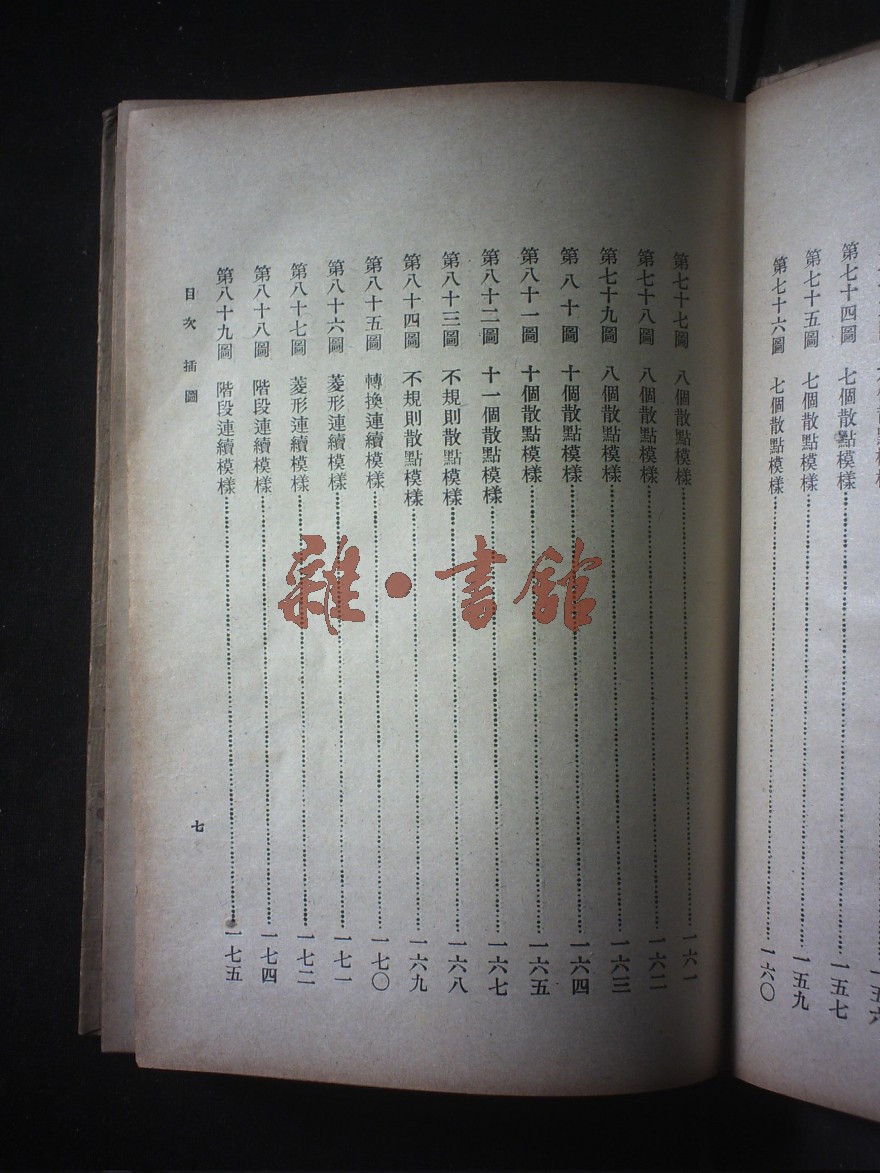 第七十四圖 七個散點模樣……一五七
第七十五圖 七個散點模樣……一五九
第七十六圖 七個散點模樣……一六〇
第七十七圖 八個散點模樣……一六一
第七十八圖 八個散點模樣……一六二
第七十九圖 八個散點模樣……一六三
第八十圖 十個散點模樣……一六四
第八十一圖 十個散點模樣……一六五
第八十二圖 十一個散點模樣……一六七
第八十三圖 不規則散點模樣……一六八
第八十四圖 不規則散點模樣……一六九
第八十五圖 轉換連續模樣……一七〇
第八十六圖 菱形連續模樣……一七一
第八十七圖 菱形連續模樣……一七二
第八十八圖 階段連續模樣……一七四
第八十九圖 階段連續模樣……一七五
目次 插圖
七
雜·書館